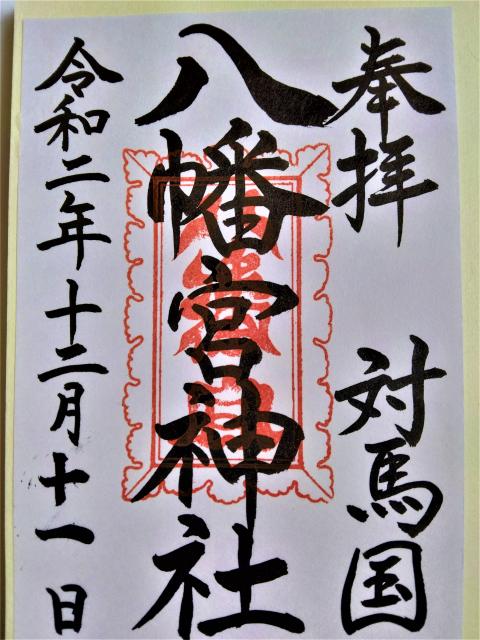 奉拝 対馬国
八幡宮神社
令和二年十二月十一日